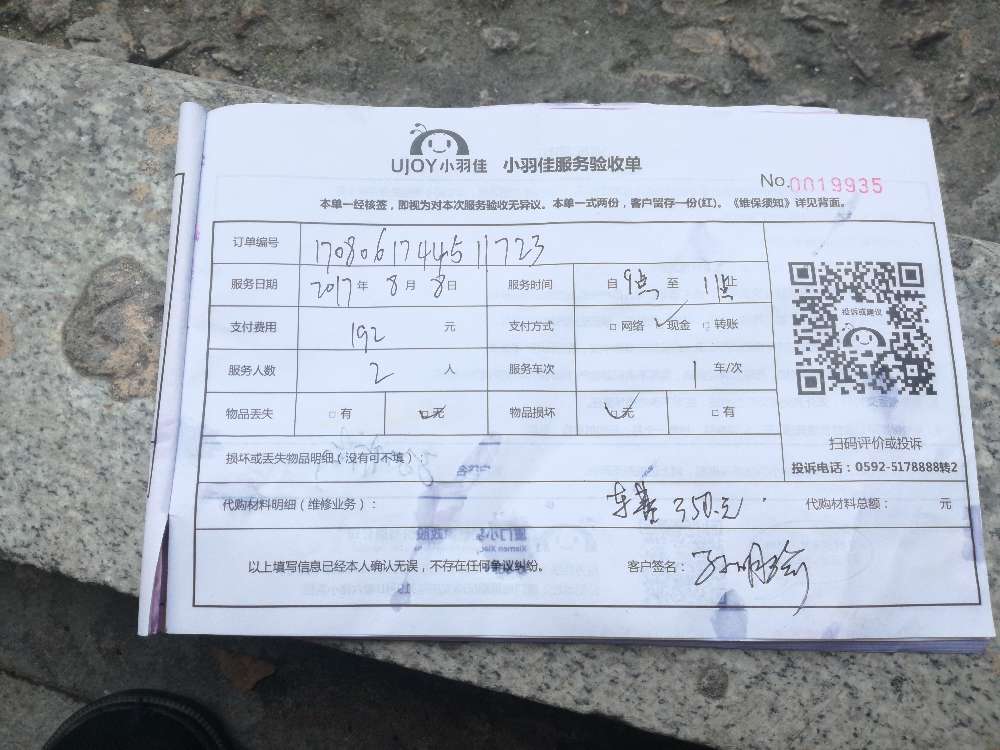 UJOY小羽佳 小羽佳服务验收单
No.0019935
本单一经核签，即视为对本次服务验收无异议。本单一式两份，客户留存一份(红)。《维保须知》详见背面。
订单编号 1708061744511723
服务日期 2017年8月8日 服务时间 自9点至11点止
支付费用 192元 支付方式 □网络 ✓现金 □转账
服务人数 2人 服务车次 1车/次
物品丢失 □有 ☑无 物品损坏 ☑无 □有
投诉或建议
扫码评价或投诉
投诉电话：0592-5178888转2
损坏或丢失物品明细（没有可不填）：
代购材料明细（维修业务）： 350元 代购材料总额： 元
以上填写信息已经本人确认无误，不存在任何争议纠纷。 客户签名：